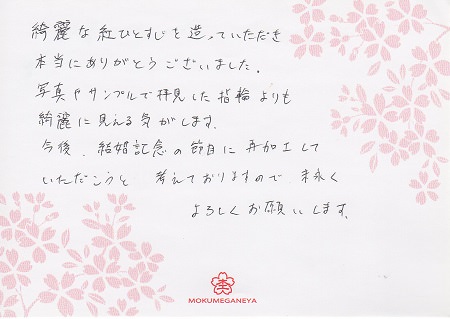 綺麗な紅ひとすじを造っていただき
本当にありがとうございました。
写真やサンプルで拝見した指輪よりも
綺麗に見える気がします。
今後、結婚記念の節目に再加工して
いただこうと 考えておりますので 末永く
よろしくお願いします。
MOKUMEGANEYA